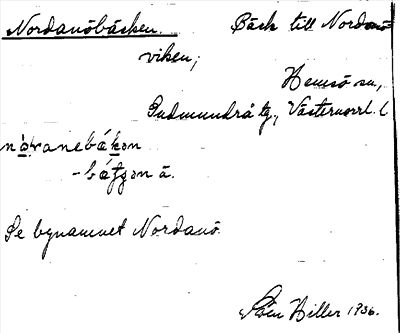 Nordanöbäcken. Bäck till Nordanö
viken;
Hemsö sn,
Gudmundrå tg., Västernorrl. l
nåranebákən
- báʒən ä.
Se bynamnet Nordanö.
Hiller 1936.